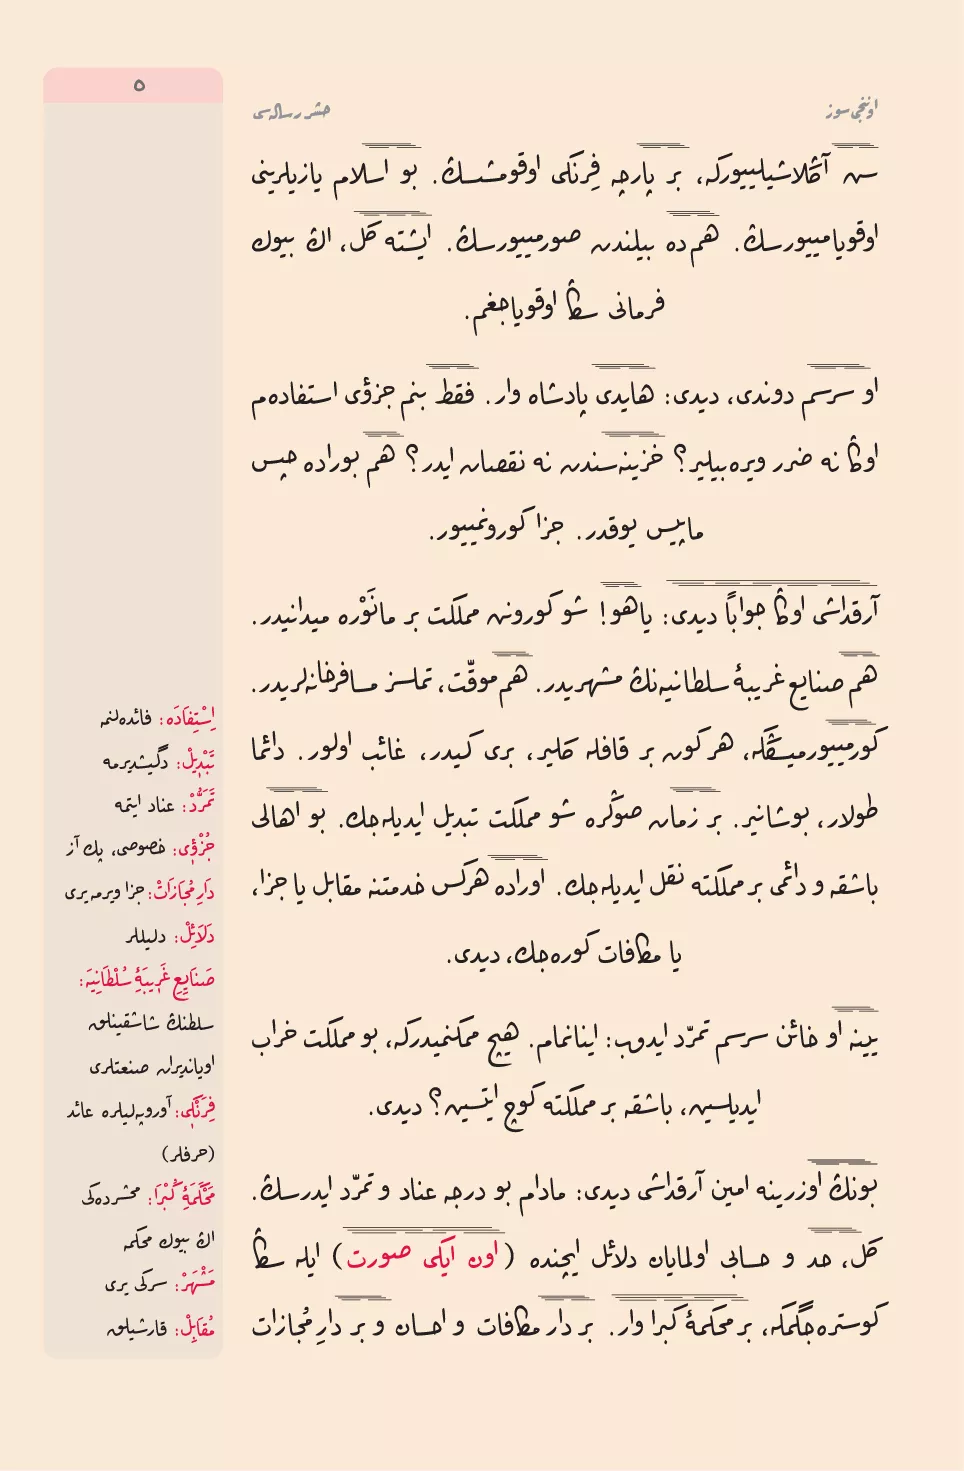 ٥
اوننجی سوز
حشر رساله‌سی
سن آڭلاشیلییوركه، بر پارچه فِرنكی اوقومشسڭ. بو اسلام یازیلرینی
اوقویامییورسڭ. هم ده بیلندن صورمییورسڭ. ایشته كل، اڭ بیوك
فرمانی سڭا اوقویاجغم.
او سرسم دوندی، دیدی: هایدی پادشاه وار. فقط بنم جزؤی استفاده‌م
اوڭا نه ضرر ویره‌بیلیر؟ خزینه‌سندن نه نقصان ایدر؟ هم بوراده حپس
ماپیس یوقدر. جزا كورونمییور.
آرقداشی اوڭا جواباً دیدی: یاهو! شو كورونن مملكت بر مانَوْره میدانیدر.
هم صنایع غریبهٔ سلطانیه‌نڭ مشهریدر. هم موقّت، تملسز مسافرخانه‌لریدر.
كورمییورمیسڭكه، هر كون بر قافله كلیر، بری كیدر، غائب اولور. دائما
طولار، بوشانیر. بر زمان صوڭره شو مملكت تبدیل ایدیله‌جك. بو اهالی
باشقه و دائمی بر مملكته نقل ایدیله‌جك. اوراده هركس خدمتنه مقابل یا جزا،
یا مكافات كوره‌جك، دیدی.
یینه او خائن سرسم تمرّد ایدوب: اینانمام. هیچ ممكنمیدركه، بو مملكت خراب
ایدیلسین، باشقه بر مملكته كوچ ایتسین؟ دیدی.
بونڭ اوزرینه امین آرقداشی دیدی: مادام بو درجه عناد و تمرّد ایدرسڭ.
كل، حد و حسابی اولمایان دلائل ایچنده (اون ایكی صورت) ایله سڭا
كوستره‌جگمكه، بر محكمهٔ كبرا وار. بر دار مكافات و احسان و بر دارِ مُجازات
اِسْتِفَادَه: فائده‌لنمه
تَبْدِیلْ: دگیشدیرمه
تَمَرُّدْ: عناد ایتمه
جُزْؤِی: خصوصی، پك آز
دَارِ مُجَازَاتْ: جزا ویرمه یری
دَلَائِلْ: دلیللر
صَنَایِعِ غَرِیبَهٔ سُلْطَانِیَه:
سلطنڭ شاشقینلق
اویاندیران صنعتلری
فِرَنْكِی: آوروپه‌لیلره عائد
(حرفلر)
مَحْكَمَهٔ كُبْرَا: محشرده‌كی
اڭ بیوك محكمه
مَشْهَرْ: سركی یری
مُقَابِلْ: قارشیلق